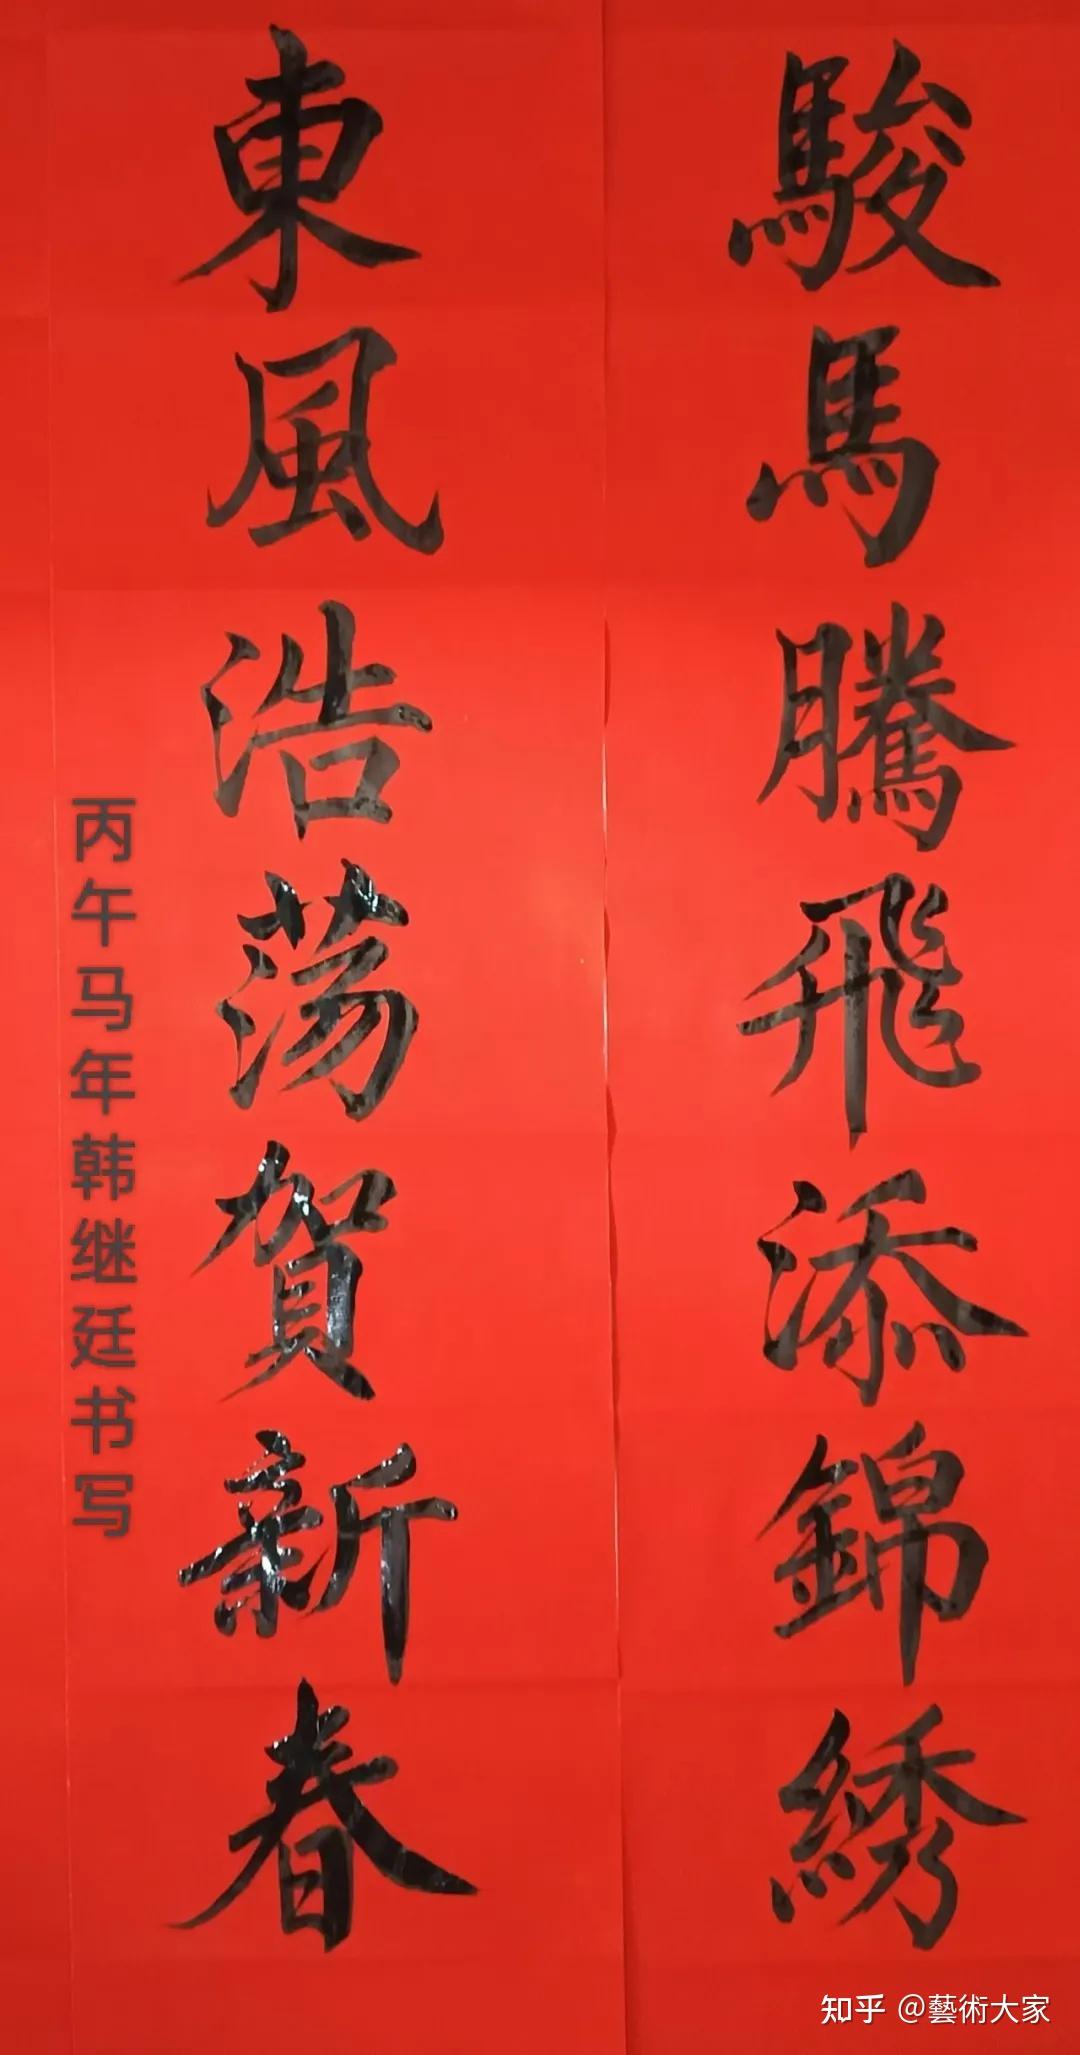 駿馬騰飛添錦綉
東風浩荡賀新春
丙午马年韩继廷书写
知乎 @藝術大家